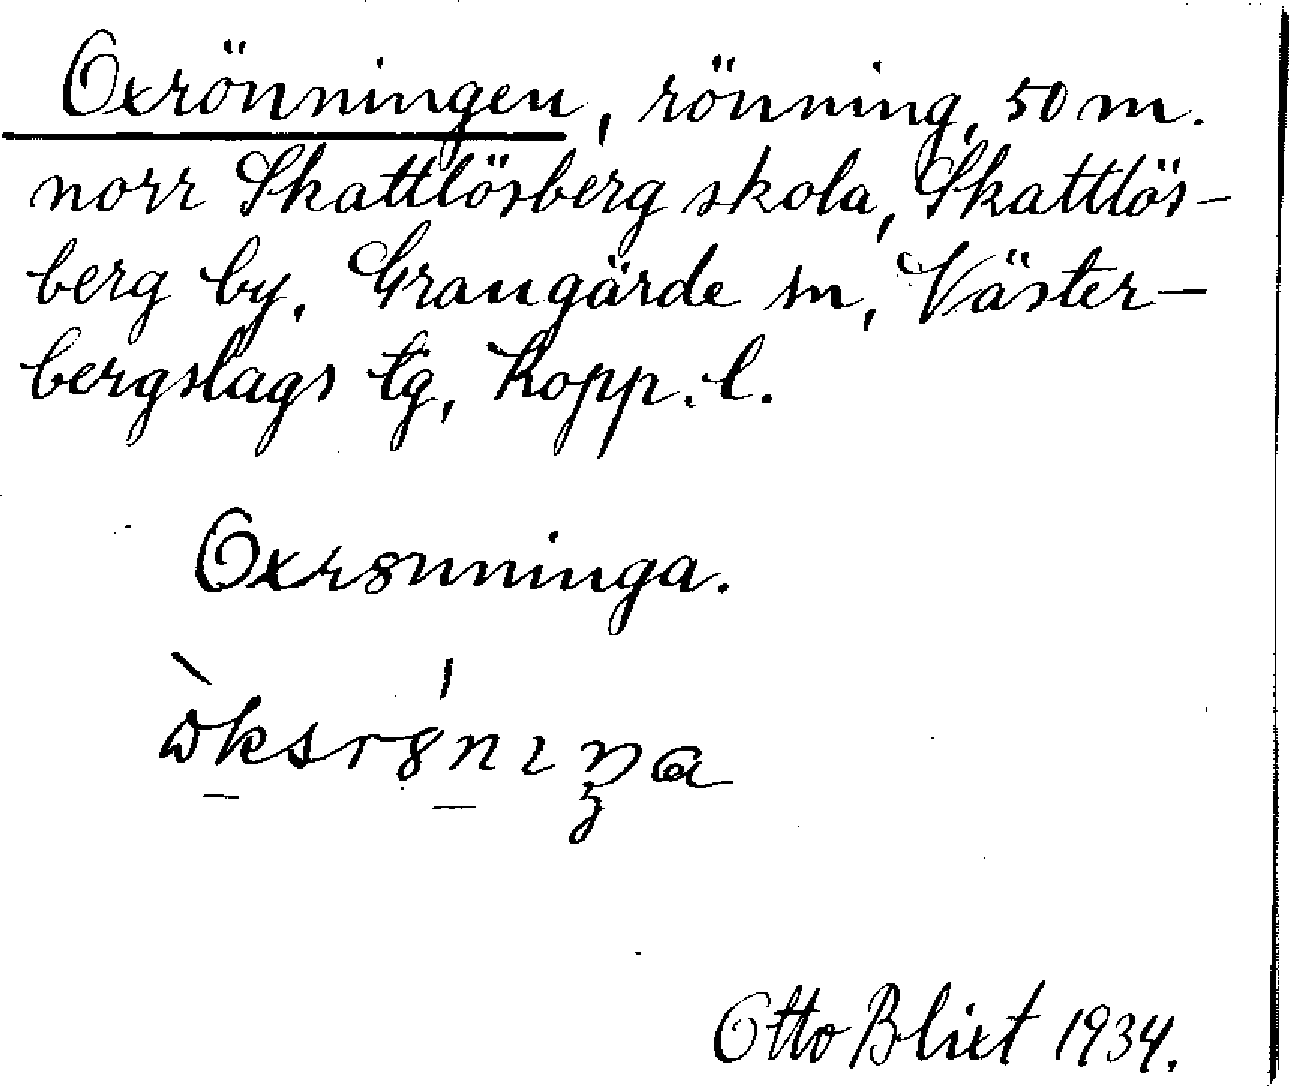 Oxrönningen, rönning, 50 m.
norr Skattlösberg skola, Skattlös-
berg by, Grangärde sn, Väster-
bergslags tg, Kopp. l.
Oxrȣnninga.
Otto Blixt 1934.